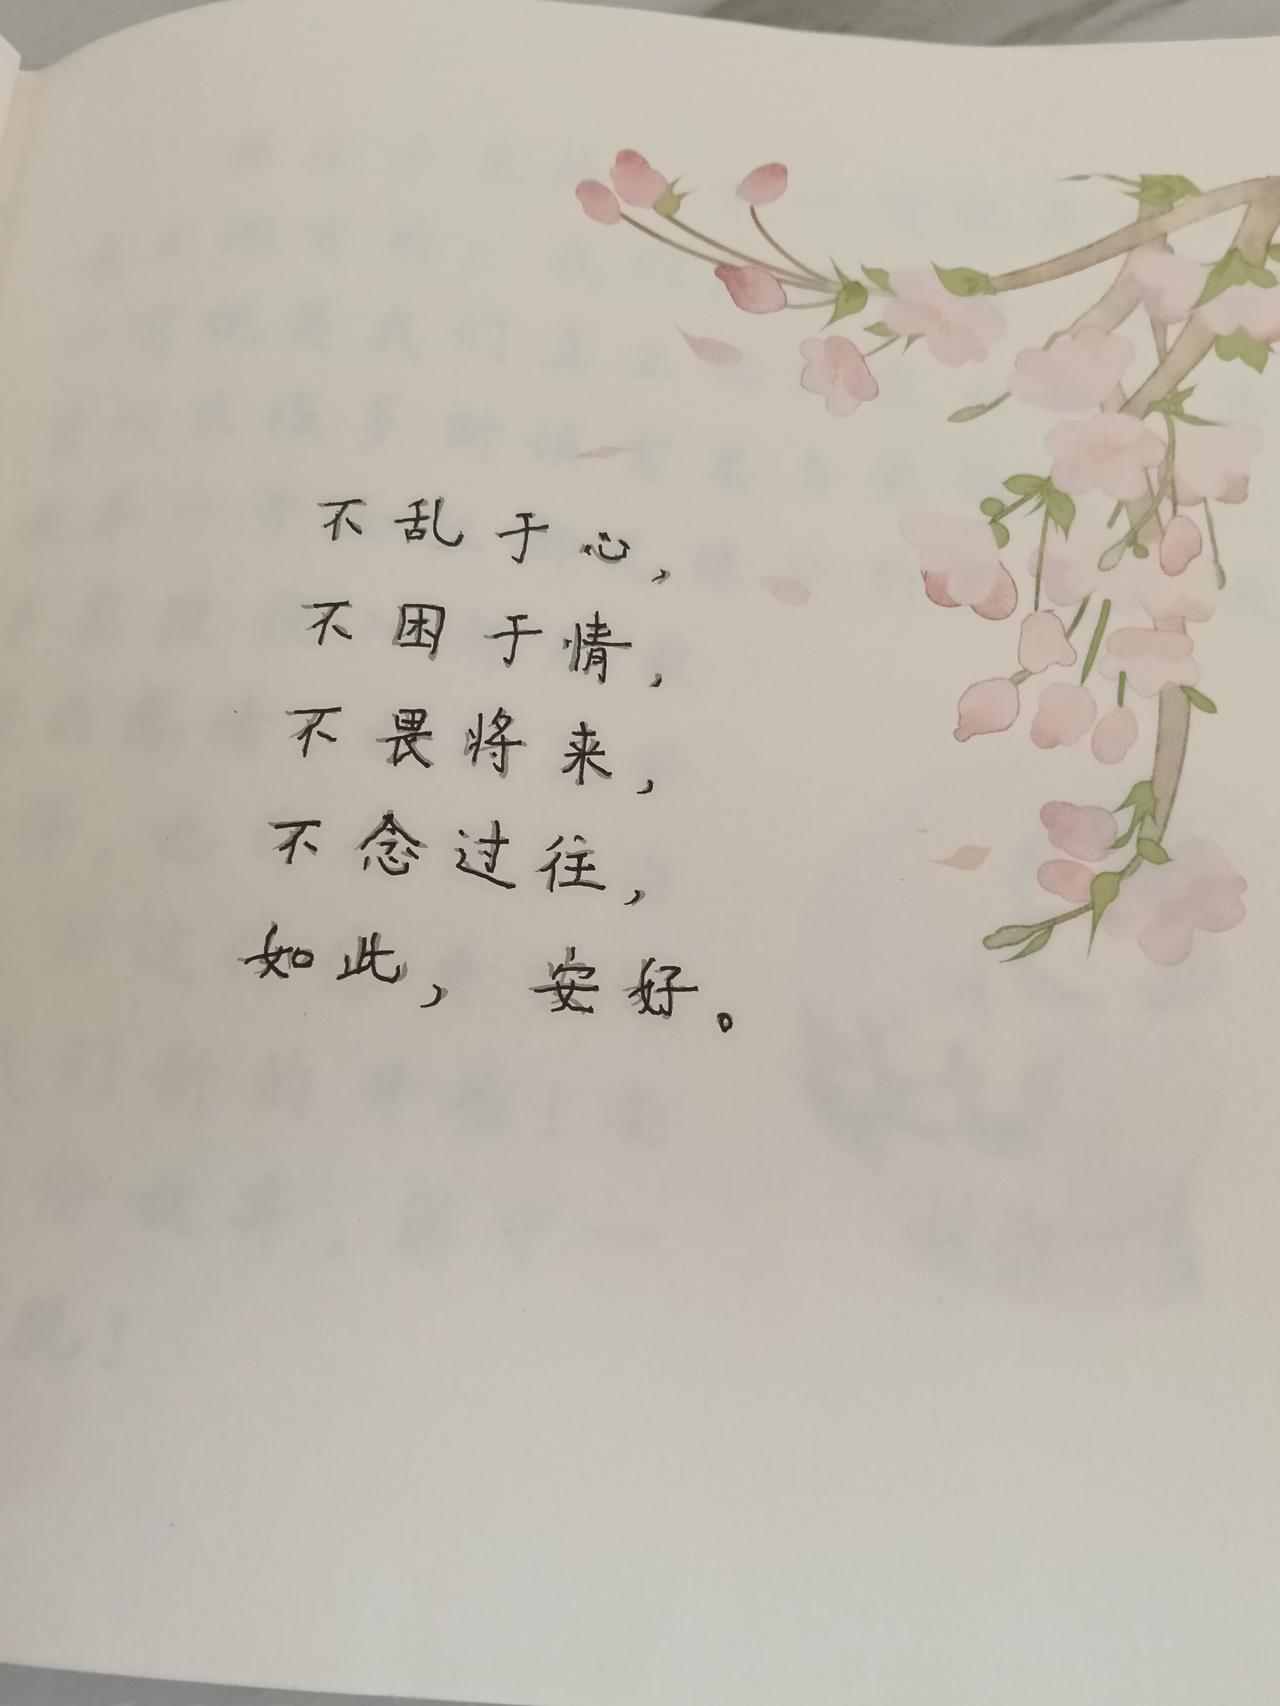 不乱于心，
不困于情，
不畏将来，
不念过往，
如此，安好。